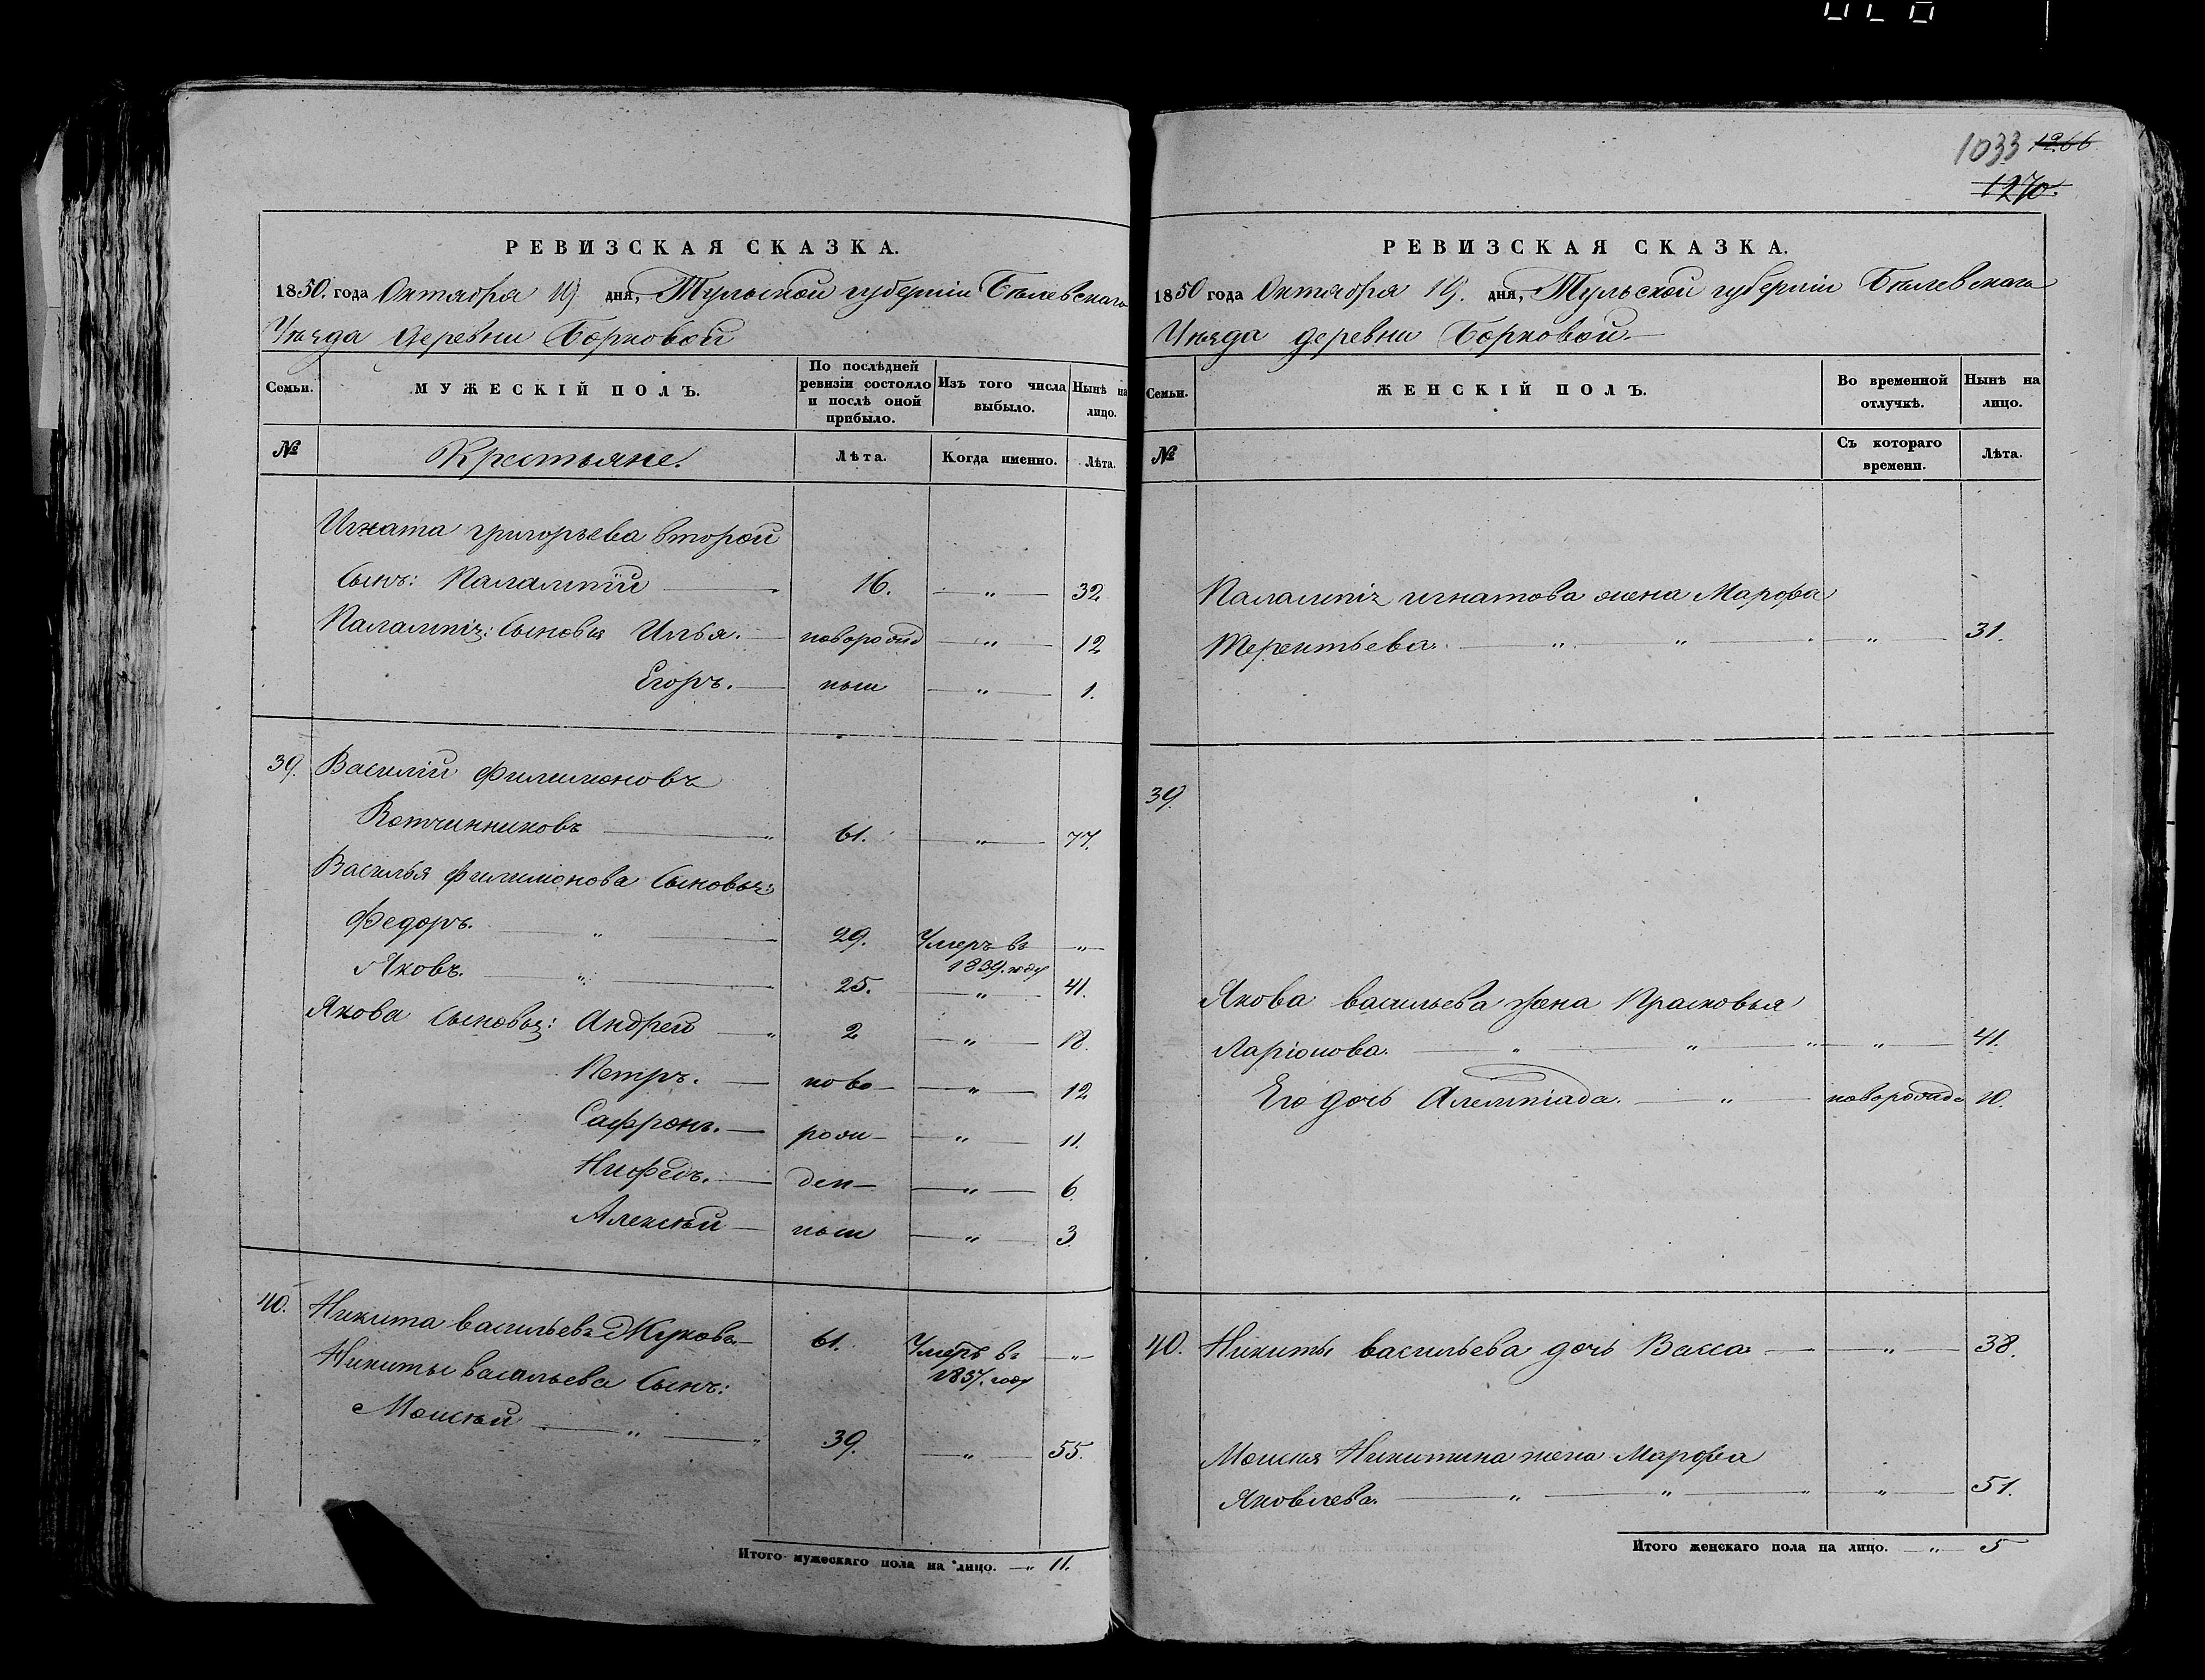 1033 1266
1270.
РЕВИЗСКАЯ СКАЗКА.
1850. года Октября 19 дня, Тульской губерніи Бѣлевскаго
Уѣзда деревни Борковой
Семьи.
МУЖЕСКІЙ ПОЛЪ.
По послѣдней ревизіи состояло и послѣ оной прибыло.
Изъ того числа выбыло.
Нынѣ на лицо.
№
Крестьяне.
Лѣта.
Когда именно.
Лѣта.
Игната григорьева второй
сынъ: Палампій 16. — „ — 32
Палампія: сыновья Илья. — новорожд — „ — 12
Егоръ. — ныи — „ — 1.
39. Василій филимоновъ
Вотчинниковъ — „ 61. — „ — 77.
Василья филимонова сыновья:
Федоръ. — „ — 29. Умеръ въ — „ —
1839. году
Яковъ. — „ — 25. — „ — 41.
Якова сыновья: Андрей — „ 2 — „ — 18.
Петръ. — ново — — „ — 12
Сафронъ. — рож — — „ — 11.
Нифедъ. — ден — — „ — 6.
Алексѣй — ныи — „ — 3.
40. Никита васильевъ Жуковъ — 61. Умеръ въ — „ —
1837. году
Никиты васильева сынъ:
Моисѣй — „ — „ 39. — „ — 55.
Итого мужескаго пола на лицо. — „ 11.
РЕВИЗСКАЯ СКАЗКА.
1850 года Октября 19. дня, Тульской губерніи Бѣлевскаго
Уѣзда деревни Борковой —
Семьи.
ЖЕНСКІЙ ПОЛЪ.
Во временной отлучкѣ.
Нынѣ на лицо.
№
Съ котораго времени.
Лѣта.
Палампія игнатова жена Марфа
Терентьева. — „ — „ — „ — 31.
39.
Якова васильева жена Прасковья
Ларіонова. — „ — „ — „ — „ — 41.
Его дочь Алемпіада. — „ — новорожде 10.
40. Никиты васильева дочь Васса — — „ — 38.
Моисея Никитина жена Марфа
Яковлева. — „ — „ — „ — „ — 51.
Итого женскаго пола на лицо. — „ — 5